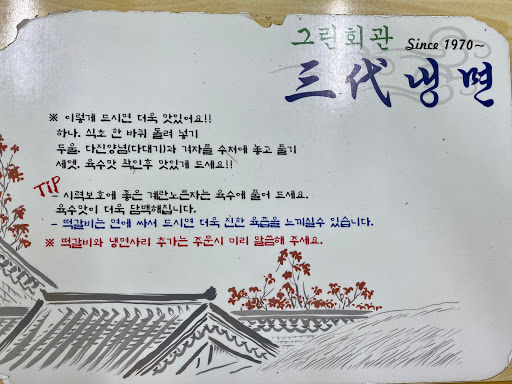 그린회관 Since 1970~
三代냉면
※ 이렇게 드시면 더욱 맛있어요!!
하나. 식초 한 바퀴 돌려 넣기
두울. 다진양념(다대기)과 겨자를 수저에 놓고 풀기
세엣. 육수맛 확인후 맛있게 드세요!!
TIP
- 시력보호에 좋은 계란노른자는 육수에 풀어 드세요.
육수맛이 더욱 담백해집니다.
- 떡갈비는 면에 싸서 드시면 더욱 진한 육즙을 느끼실수 있습니다.
※ 떡갈비와 냉면사리 추가는 주문시 미리 말씀해 주세요.